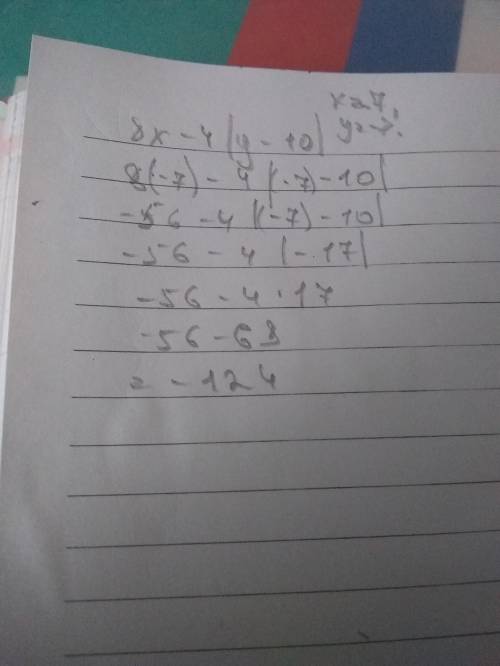 x=7.
8x-4|y-10| y=-7.
8(-7)-4|(-7)-10|
-56-4|(-7)-10|
-56-4|-17|
-56-4·17
-56-68
=-124